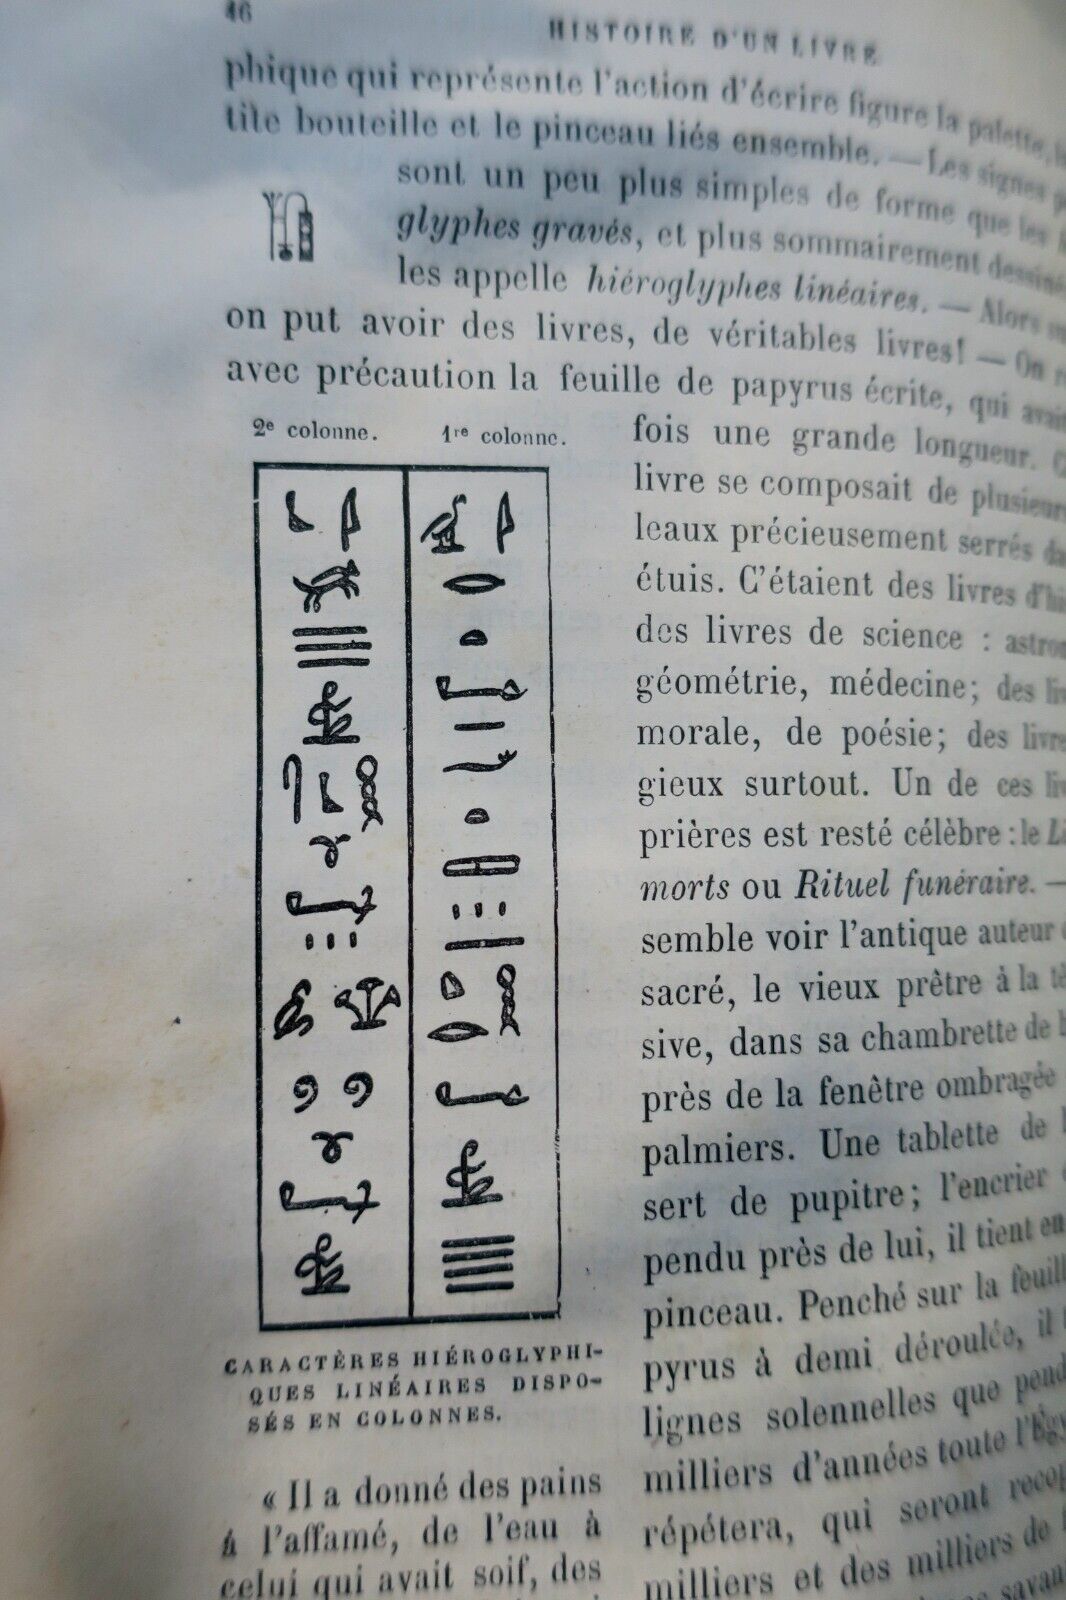 46
HISTOIRE D'UN LIVRE
phique qui représente l'action d'écrire figure la palette,
tite bouteille et le pinceau liés ensemble. — Les signes
sont un peu plus simples de forme que les
glyphes gravés, et plus sommairement dessiné
les appelle hiéroglyphes linéaires. — Alors
on put avoir des livres, de véritables livres! — On
avec précaution la feuille de papyrus écrite, qui avait
2e colonne. 1re colonne.
fois une grande longueur.
livre se composait de plusieurs
leaux précieusement serrés
étuis. C'étaient des livres d'hi
des livres de science : astron
géométrie, médecine; des liv
morale, de poésie; des livre
gieux surtout. Un de ces liv
prières est resté célèbre : le Li
morts ou Rituel funéraire. —
semble voir l'antique auteur
sacré, le vieux prêtre à la tê
sive, dans sa chambrette de
près de la fenêtre ombragée
palmiers. Une tablette de
sert de pupitre; l'encrier
pendu près de lui, il tient en
pinceau. Penché sur la feuill
pyrus à demi déroulée, il
lignes solennelles que pend
milliers d'années toute l'Egy
répétera, qui seront recop
milliers et des milliers de
savan
CARACTÈRES HIÉROGLYPHI-
QUES LINÉAIRES DISPO-
SÉS EN COLONNES.
« Il a donné des pains
à l'affamé, de l'eau à
celui qui avait soif, des